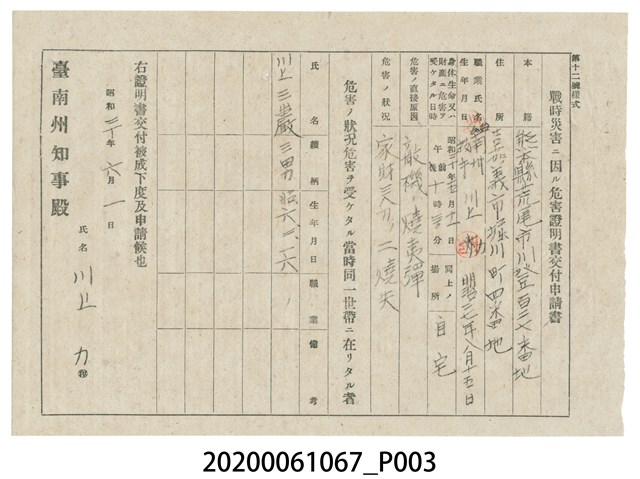 第十二號樣式
戰時災害ニ因ル危害證明書交付申請書
本籍 熊本縣荒尾市川登百三七番地
住所 嘉義市堀川町四番地
職業氏名 川上力
生年月日 明治二七年八月十五日
身体生命又ハ財產ニ危害ヲ受ケタル日時 昭和二十年 月十 日 午前後十時 分 同上ノ場所 自宅
危害ノ直接原因 敵機ノ燒夷彈
危害ノ狀況 家財 ニ燒失
危害ノ狀況危害ヲ受ケタル當時同一世帶ニ在リタル者
氏名 續柄 生年月日 職業 備考
川上三巖 三男 昭六、二、一六
右證明書交付被成下度及申請候也
昭和二十年六月一日
氏名 川上力
臺南州知事殿
20200061067_P003